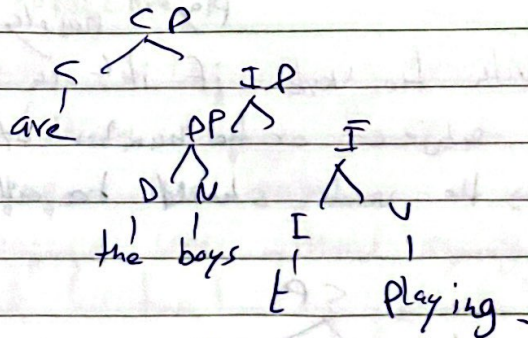 CP
C IP
are DP Ī
D N I V
the boys t playing.